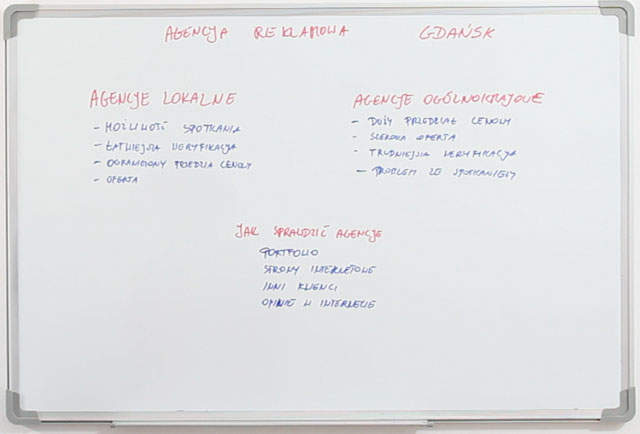 AGENCJA REKLAMOWA GDAŃSK
AGENCJE LOKALNE
- MOŻLIWOŚĆ SPOTKANIA
- ŁATWIEJSZA WERYFIKACJA
- OGRANICZONY PRZEDZIAŁ CENOWY
- OFERTA
AGENCJE OGÓLNOKRAJOWE
- DUŻY PRZEDZIAŁ CENOWY
- SZEROKA OFERTA
- TRUDNIEJSZA WERYFIKACJA
- PROBLEM ZE SPOTKANIEM
JAK SPRAWDZIĆ AGENCJE
PORTFOLIO
STRONY INTERNETOWE
INNI KLIENCI
OPINIE W INTERNECIE